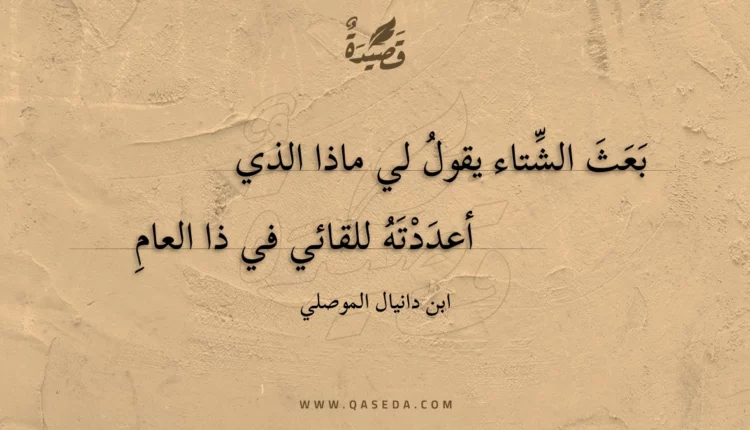 قَصِيدَةٌ
بَعَثَ الشِّتاء يقولُ لي ماذا الذي
أعدَدْتَهُ للقائي في ذا العامِ
ابن دانيال الموصلي
WWW.QASEDA.COM